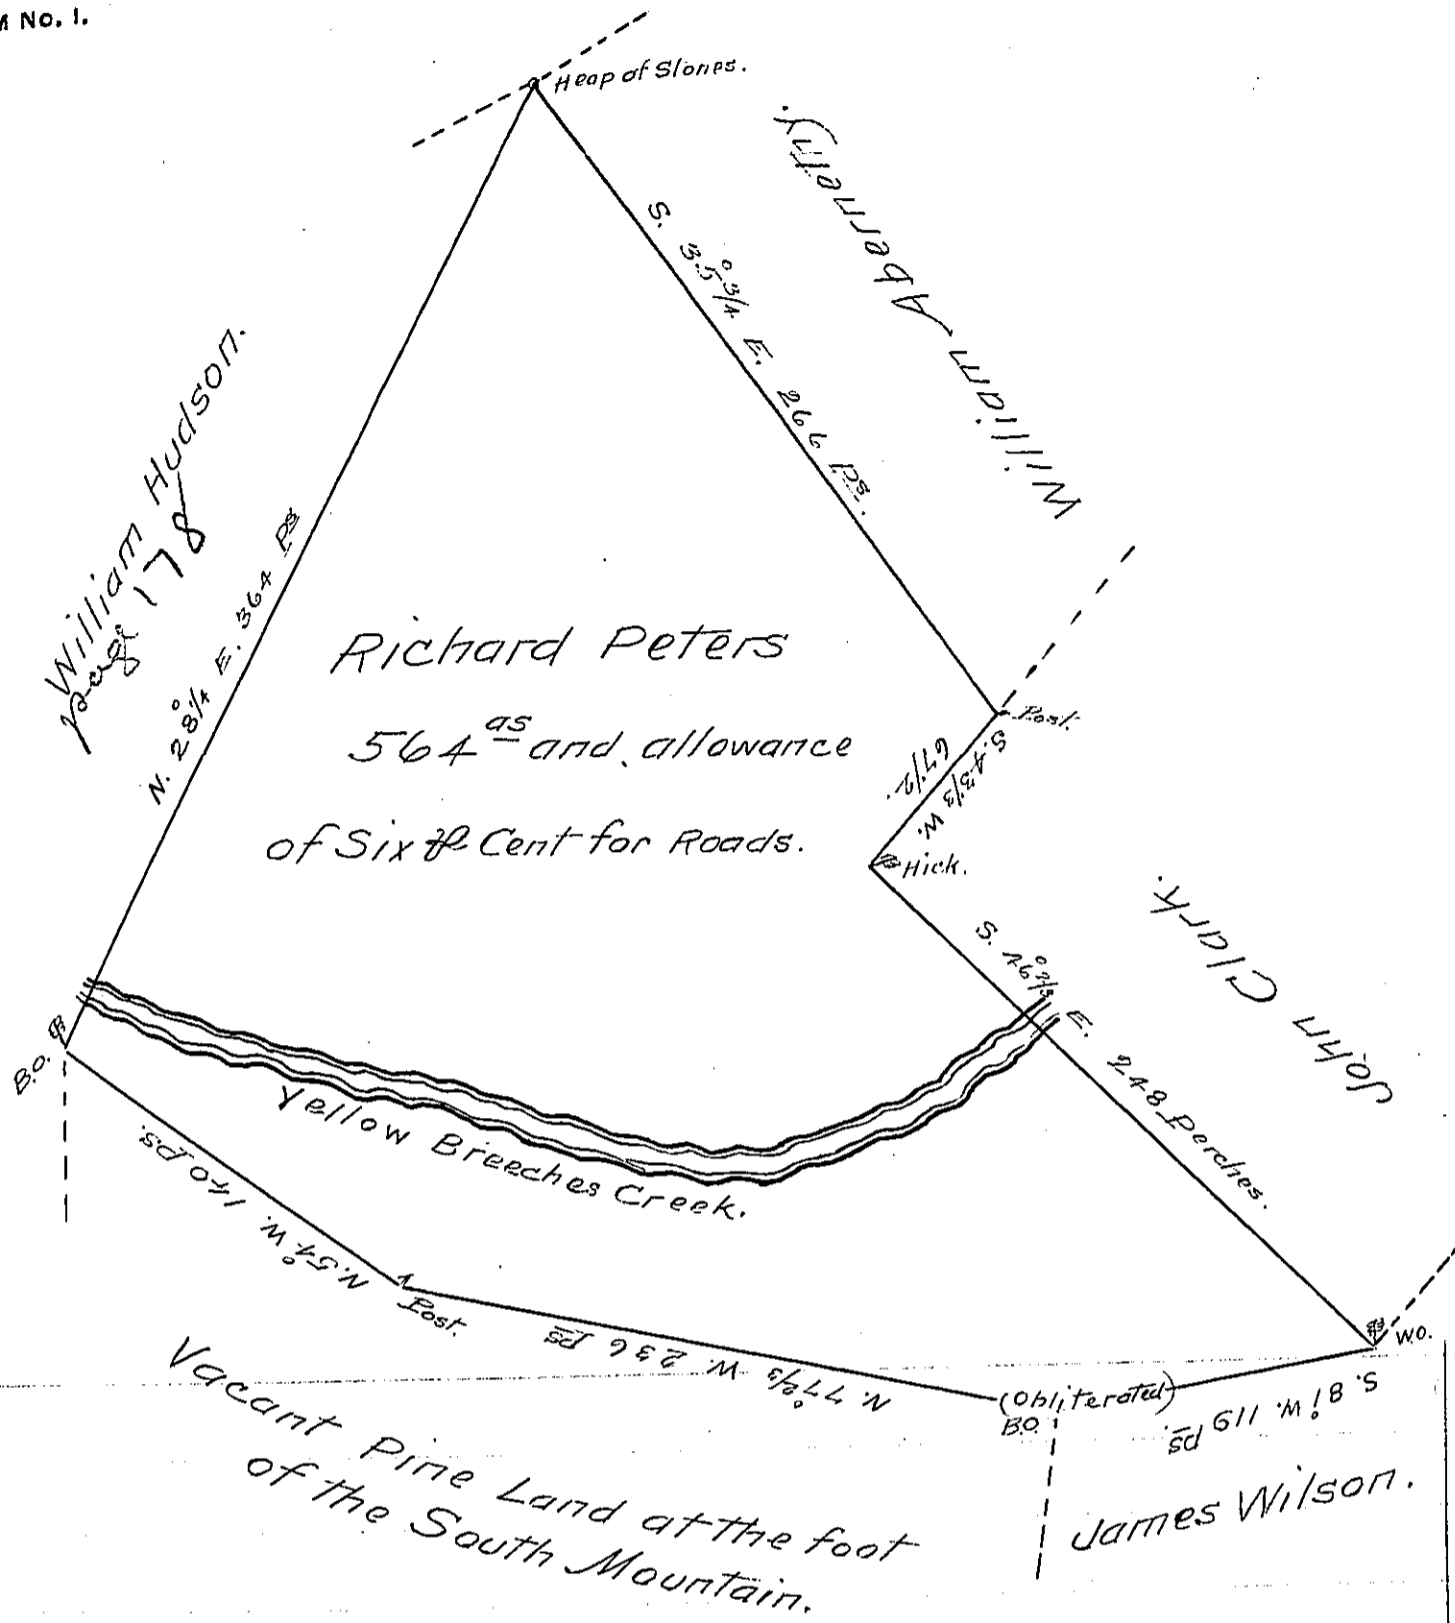 M No. 1.
Heap of Stones.
William Abernethy.
S. 35°3/4 E. 266 ps.
William Hudson.
page 178
N. 28°1/4 E. 364 ps
Richard Peters
564 as and allowance
of Six ⅌ Cent for Roads.
Post.
S. 43 1/3 W.
67 1/2.
Hick.
John Clark.
S. 46°2/3 E. 248 Perches.
B.O.
Yellow Breeches Creek.
N. 54° W. 140 ps.
Post.
N. 77°2/3 W. 236 ps
(Obliterated)
B.O.
W.O.
S. 81° W. 119 ps.
James Wilson.
Vacant Pine Land at the foot
of the South Mountain.